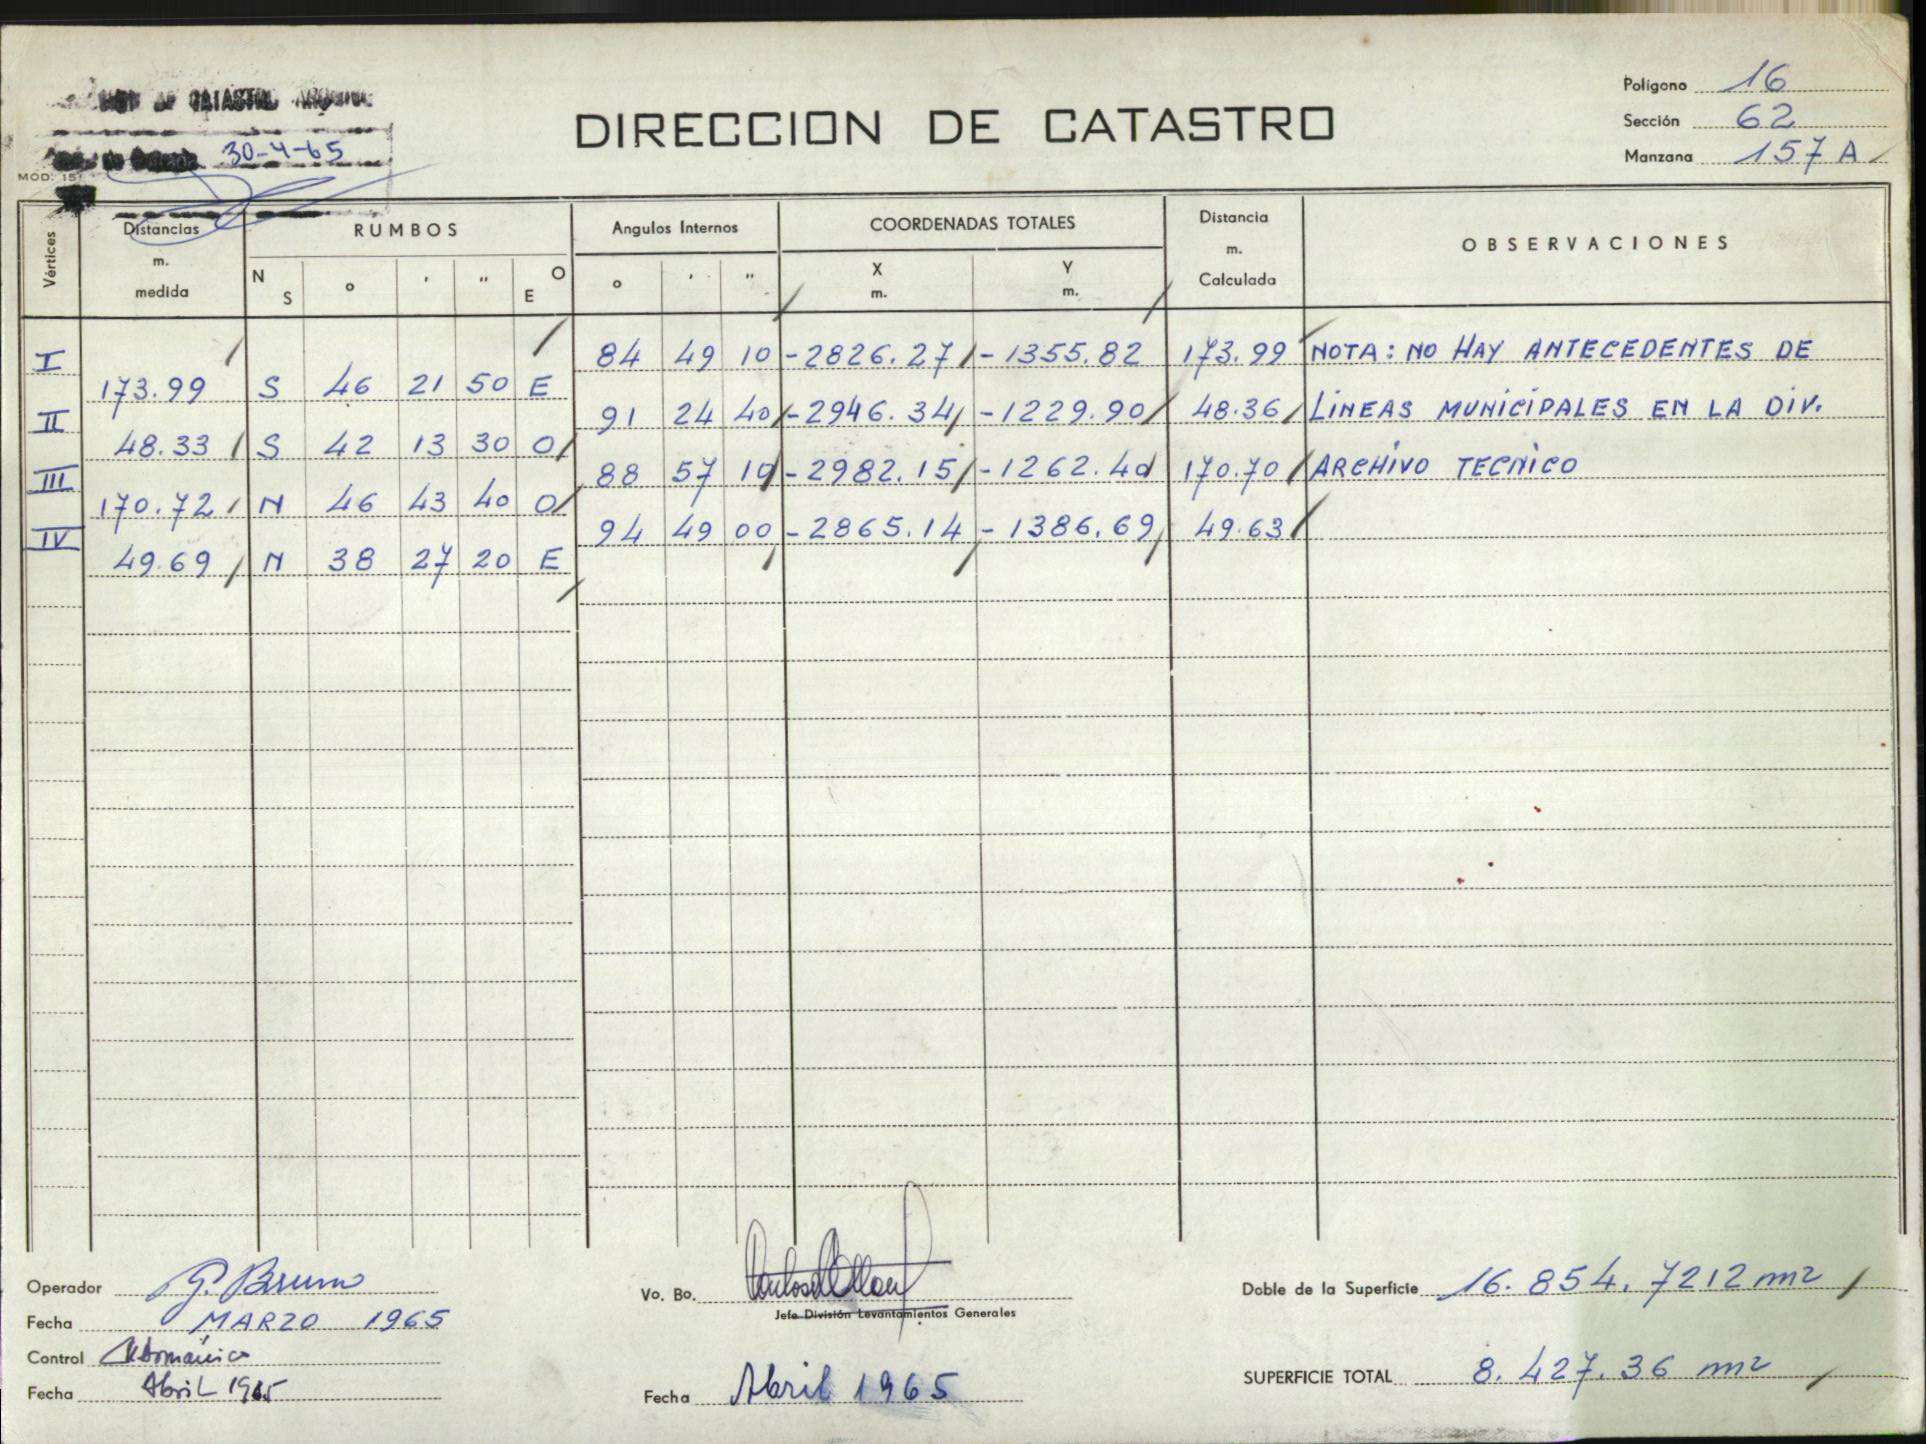 DE CATASTRO
30-4-65
MOD: 15
DIRECCION DE CATASTRO
Polígono 16
Sección 62
Manzana 157 A
Vértices
Distancias m. medida
RUMBOS
N S ° ' " E O
Angulos Internos
° ' "
COORDENADAS TOTALES
X m. Y m.
Distancia m. Calculada
OBSERVACIONES
I 84 49 10 -2826.27 -1355.82 173.99 NOTA: NO HAY ANTECEDENTES DE
173.99 S 46 21 50 E
II 91 24 40 -2946.34 -1229.90 48.36 LINEAS MUNICIPALES EN LA DIV.
48.33 S 42 13 30 O
III 88 57 10 -2982.15 -1262.40 170.70 ARCHIVO TECNICO
170.72 N 46 43 40 O
IV 94 49 00 -2865.14 -1386.69 49.63
49.69 N 38 27 20 E
Operador G. Bruno
Fecha MARZO 1965
Control
Fecha Abril 1965
Vo. Bo.
Jefe División Levantamientos Generales
Fecha Abril 1965
Doble de la Superficie 16.854.7212 m2
SUPERFICIE TOTAL 8.427.36 m2